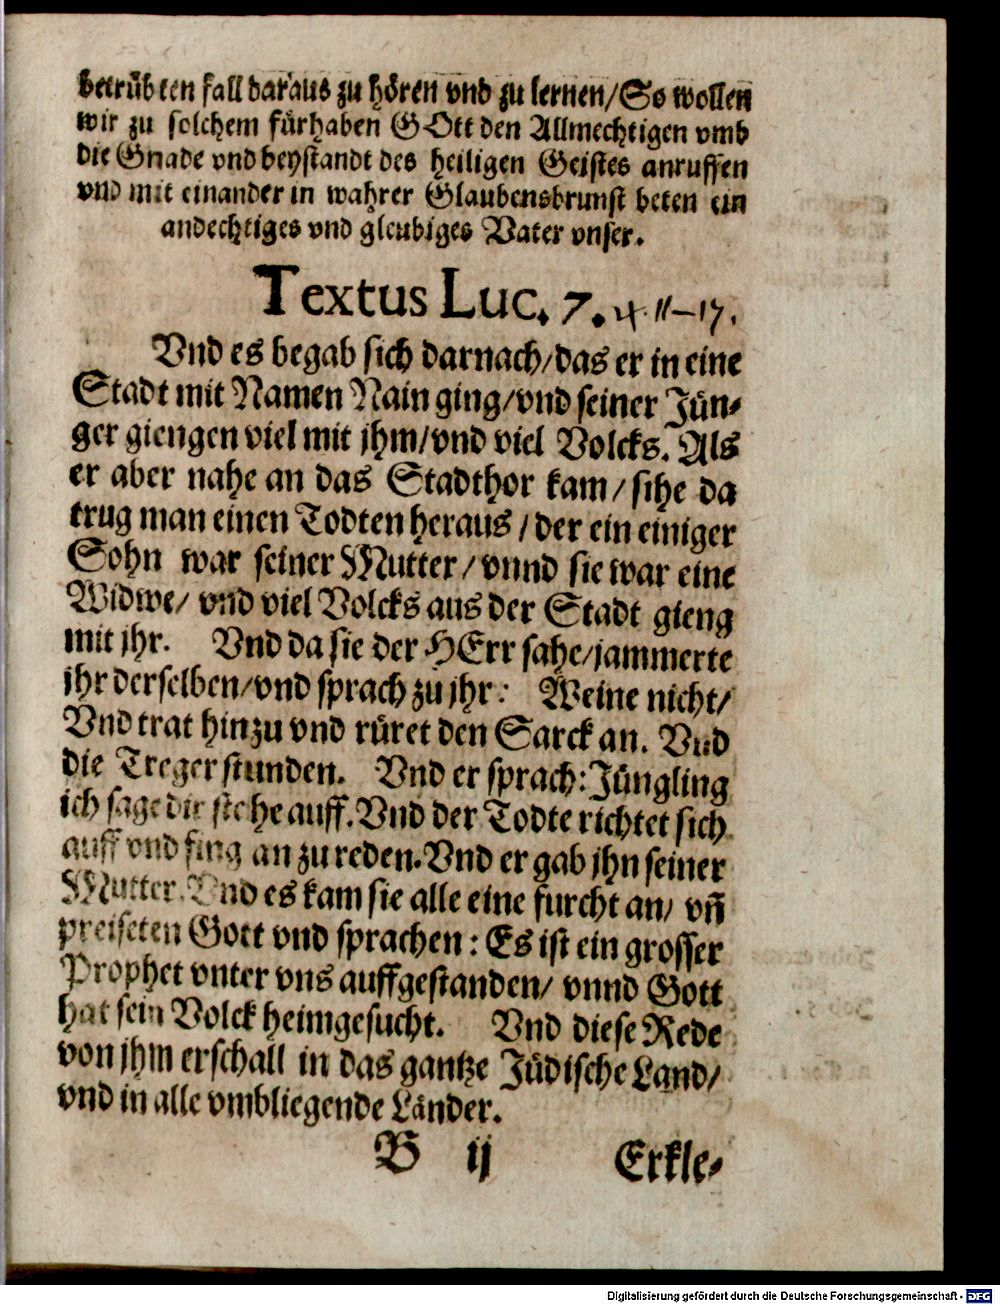 betrübten fall daraus zu hören vnd zu lernen/So wollen
wir zu solchem fürhaben GOtt den Allmechtigen vmb
die Gnade vnd beystandt des heiligen Geistes anruffen
vnd mit einander in wahrer Glaubensbrunst beten ein
andechtiges vnd gleubiges Vater vnser.
Textus Luc. 7. 11–17.
Vnd es begab sich darnach/das er in eine
Stadt mit Namen Nain ging/vnd seiner Jün-
ger giengen viel mit jhm/vnd viel Volcks. Als
er aber nahe an das Stadthor kam/ sihe da
trug man einen Todten heraus/der ein einiger
Sohn war seiner Mutter/ vnnd sie war eine
Widwe/ vnd viel Volcks aus der Stadt gieng
mit jhr. Vnd da sie der HErr sahe/jammerte
jhr derselben/vnd sprach zu jhr: Weine nicht/
Vnd trat hinzu vnd rüret den Sarck an. Vnd
die Treger stunden. Vnd er sprach: Jüngling
ich sage dir stehe auff. Vnd der Todte richtet sich
auff vnd fing an zu reden. Vnd er gab jhn seiner
Mutter. Vnd es kam sie alle eine furcht an/ vñ
preiseten Gott vnd sprachen: Es ist ein grosser
Prophet vnter vns auffgestanden/ vnnd Gott
hat sein Volck heimgesucht. Vnd diese Rede
von jhm erschall in das gantze Jüdische Land/
vnd in alle vmbliegende Länder.
B ij Erkle-
Digitalisierung gefördert durch die Deutsche Forschungsgemeinschaft - DFG